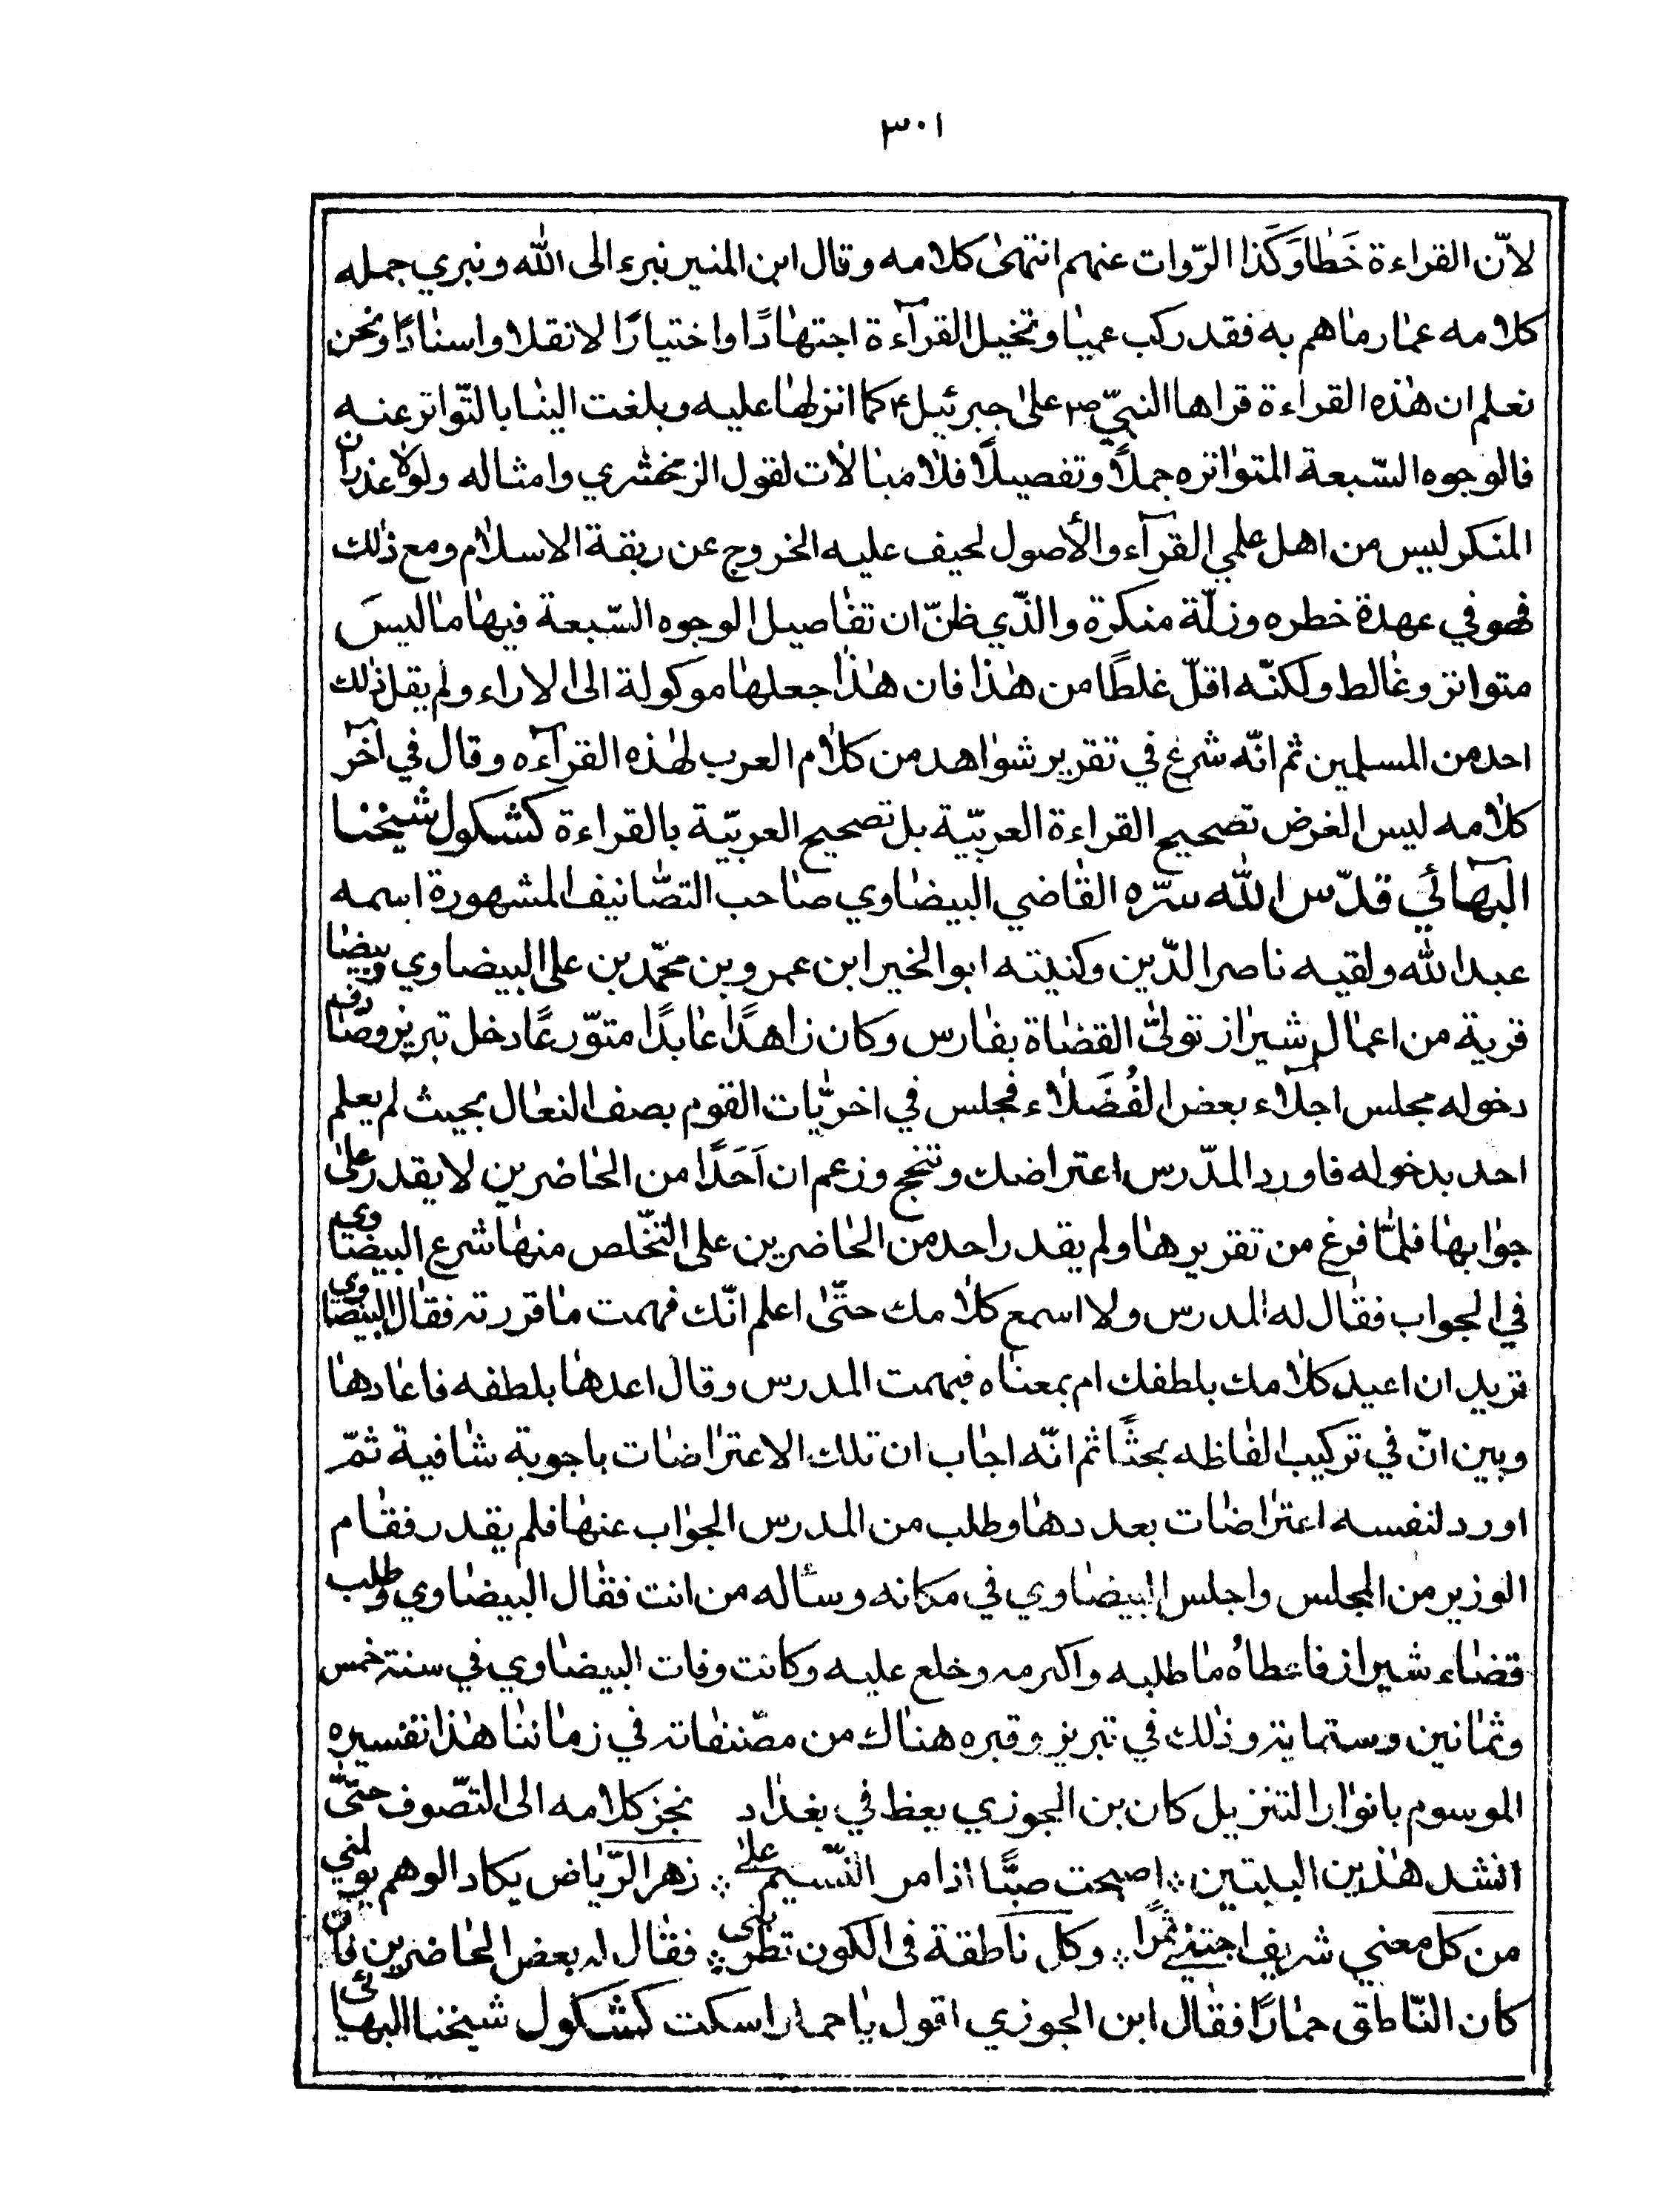 ٣٠١
لانّ القراءة خَطا وَكَذا الرّوات عنهم انتهىٰ كلامه وقال ابن المنير نبرء الى الله ونبري جمله
كلامه عمّا رماهم به فقد ركب عميا وتخيل القرآءة اجتهادًا واختيارًا لا نقلا واسنادًا ونحن
نعلم ان هٰذه القراءة قراها النبيّ ص على جبرئيل ع كما انزلها عليه وبلغت الينا بالتّواتر عنه
فالوجوه السّبعة المتواتره جملاً وتفصيلاً فلا مبالات لقول الزمخشري وامثاله ولولا عذر ان
المنكر ليس من اهل علمي القرآء والأصول لحيف عليه الخروج عن ربقة الاسلام ومع ذلك
فهو في عهدة خطره وزلّة منكرة والذّي ظنّ ان تفاصيل الوجوه السّبعة فيها ما ليسَ
متواتر وغالط ولكنّه اقلّ غلطًا من هٰذا فان هٰذا جعلها موكولة الى الاراء ولم يقل ذلك
احد من المسلمين ثم انّه شرع في تقرير شواهد من كلام العرب لهٰذه القرآءه وقال في آخر
كلامه ليس الغرض تصحيح القراءة العربيّة بل تصحيح العربيّة بالقراءة كشكول شيخنا
البهآئي قدّس الله سرّه القاضي البيضاوي صاحب التصّانيف المشهورة اسمه
عبد الله ولقيه ناصر الدّين وكنيته ابو الخير ابن عمرو بن محمّد بن على البيضاوي وبيضا
قرية من اعمال شيراز تولىّ القضاة بفارس وكان زاهدًا عابدًا متوّرعًا دخل تبريز وصادف
دخوله مجلس اجلآء بعض الفُضَلاء فجلس في اخريّات القوم بصف النعال بحيث لم يعلم
احد بدخوله فاورد المدّرس اعتراضك وتنجح وزعم ان اَحَدًا من الحاضرين لا يقدر على
جوابها فلمّا فرغ من تقريرها ولم يقدر احد من الحاضرين على التخّلص منها شرع البيضاوي
في الجواب فقال له المدرس ولا اسمع كلامك حتّى اعلم انّك فهمت ما قررته فقال البيضاوي
تريد ان اعيد كلامك بلطفك ام بمعناه فبهمت المدرس وقال اعدها بلطفه فاعادها
وبين انّ في تركيب الفاظه بحثًا ثم انّه اجاب ان تلك الاعتراضات باجوبة شافية ثمّ
اورد لنفسه اعتراضات بعددها وطلب من المدرس الجواب عنها فلم يقدر فقام
الوزير من المجلس واجلس البيضاوي في مكانه وسأله من انت فقال البيضاوي وطلب
قضاء شيراز فاعطاهُ ما طلبه واكرمه وخلع عليه وكانت وفات البيضاوي في سنة خمس
وثمانين وستماية وذلك في تبريز وقبره هناك من مصّنفاته في زماننا هٰذا تفسيره
الموسوم بانوار التنزيل كان بن الجوزي يعظ في بغداد نجز كلامه الى التصّوف حتّى
انشد هٰذين البيتين ؞ اصبحت صبًّا اذا مر النّسيم على ؞ زهر الرّياض يكاد الوهم يولمني
من كل معني شريف اجتنى ثمرًا ؞ وكل ناطقة فى الكون تطربني ؞ فقال له بعض الحاضرين فان
كان النّاطق حمارًا فقال ابن الجوزي اقول يا حمار اسكت كشكول شيخنا البهائى